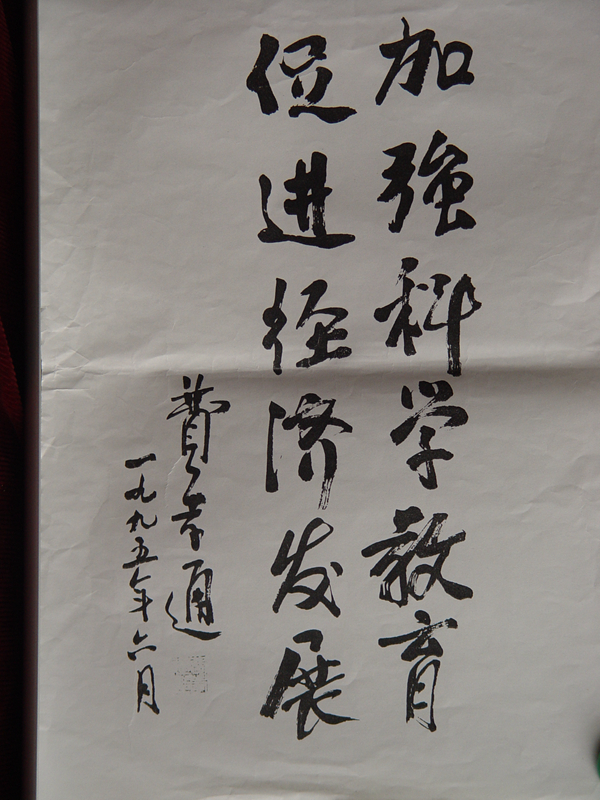 加強科学教育
促进经济发展
費孝通
一九九五年六月